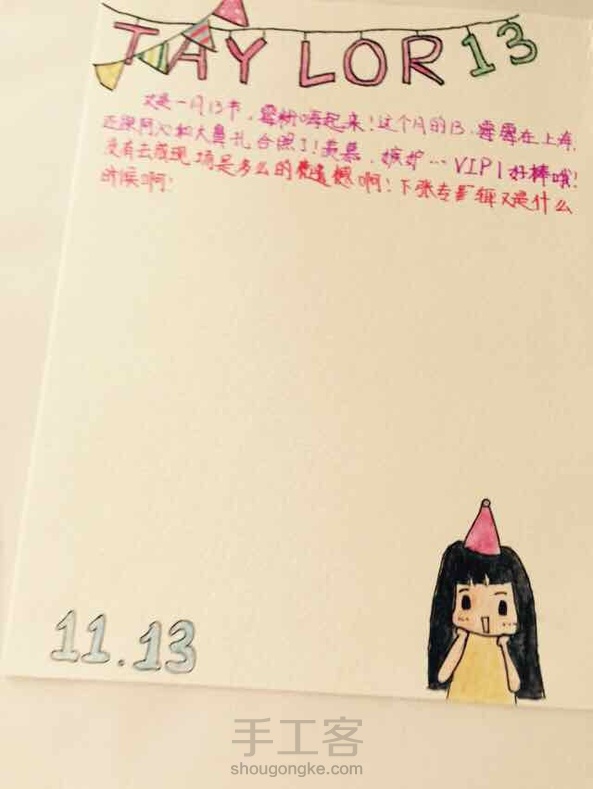 TAYLOR 13
又是一月13节，霉粉嗨起来！这个月的13，霉霉在上海，
还跟阿沁和大鼻孔合照了！羡慕，嫉妒…VIP1好棒哦！
没有去成现场是多么的遗憾啊！下张专辑又是什么
时候啊！
11.13
手工客
shougongke.com